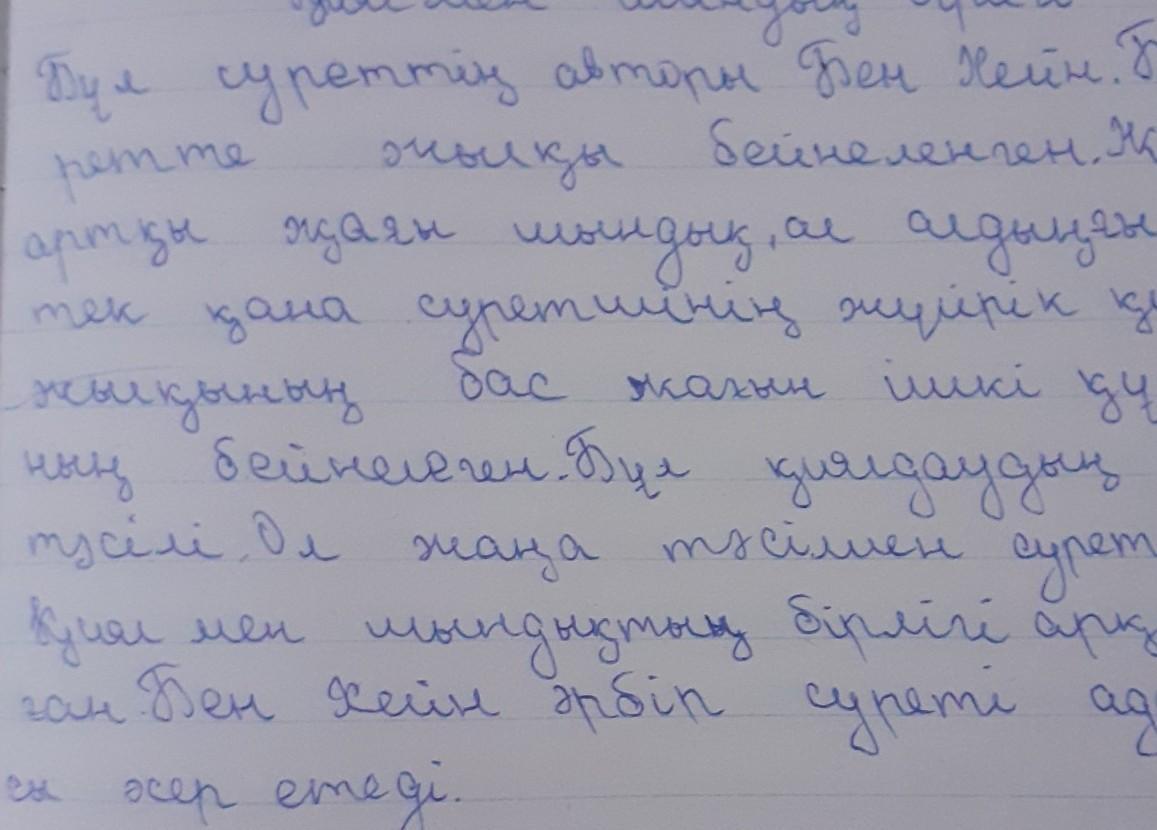 Бұл суреттің авторы Бен Хейн. Б
ретте жылқы бейнеленген. Жұ
артқы жағы шындық, ал алдыңғы
тек қана суретшінің жүйрік қи
жылқының бас жағын ішкі құ
ның бейнелеген. Бұл қиялдаудың
тәсілі. Ол жаңа тәсілмен сурет
Қиял мен шындықтың бірлігі арқ
ған. Бен Хейн әрбір суреті ад
ен әсер етеді.